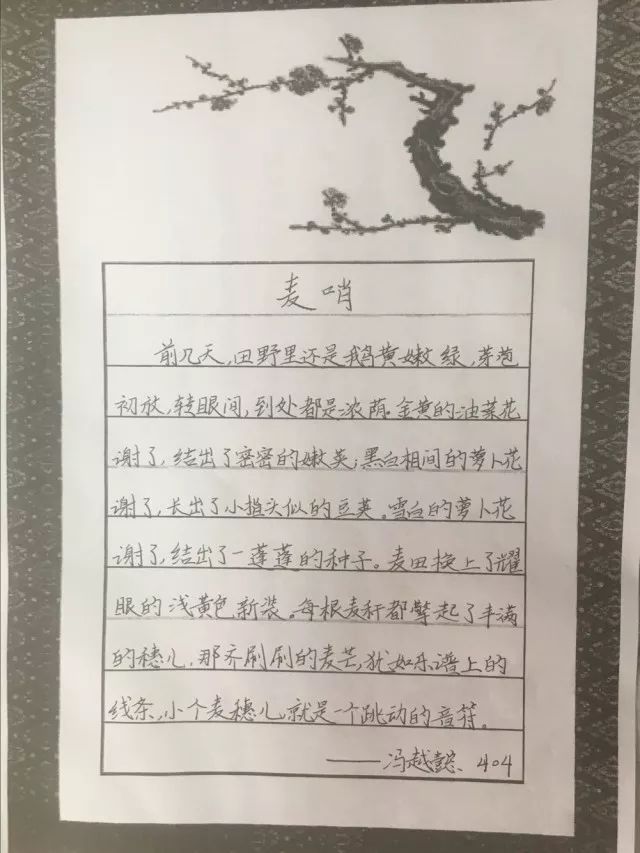 麦哨
前几天,田野里还是鹅黄嫩绿,芽苞
初放,转眼间,到处都是浓荫.金黄的油菜花
谢了,结出了密密的嫩荚;黑白相间的萝卜花
谢了,长出了小指头似的豆荚。雪白的萝卜花
谢了,结出了一蓬蓬的种子。麦田换上了耀
眼的浅黄色新装。每根麦秆都擎起了丰满
的穗儿,那齐刷刷的麦芒,犹如乐谱上的
线条,小个麦穗儿,就是一个跳动的音符。
——冯越懿、404